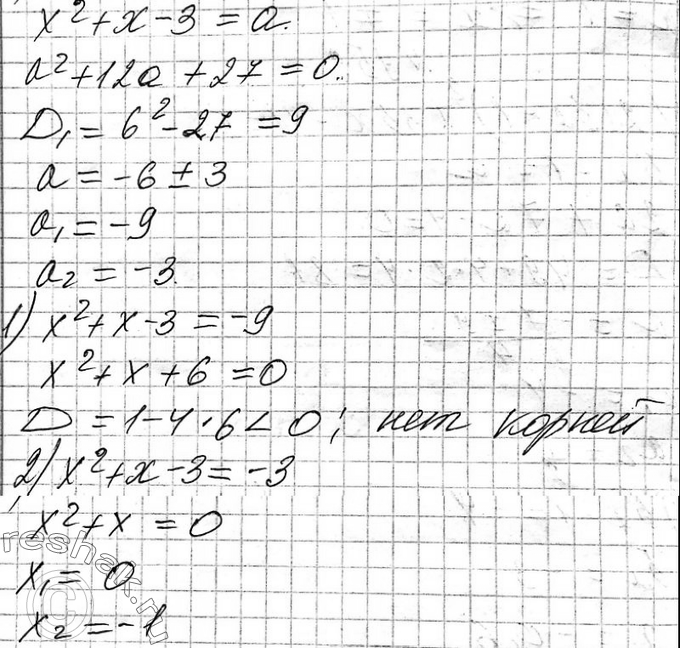 x² + x - 3 = a.
a² + 12a + 27 = 0.
D₁ = 6² - 27 = 9
a = -6 ± 3
a₁ = -9
a₂ = -3.
1) x² + x - 3 = -9
x² + x + 6 = 0
D = 1 - 4 · 6 < 0; нет корней
2) x² + x - 3 = -3
x² + x = 0
x₁ = 0
x₂ = -1
reshak.ru